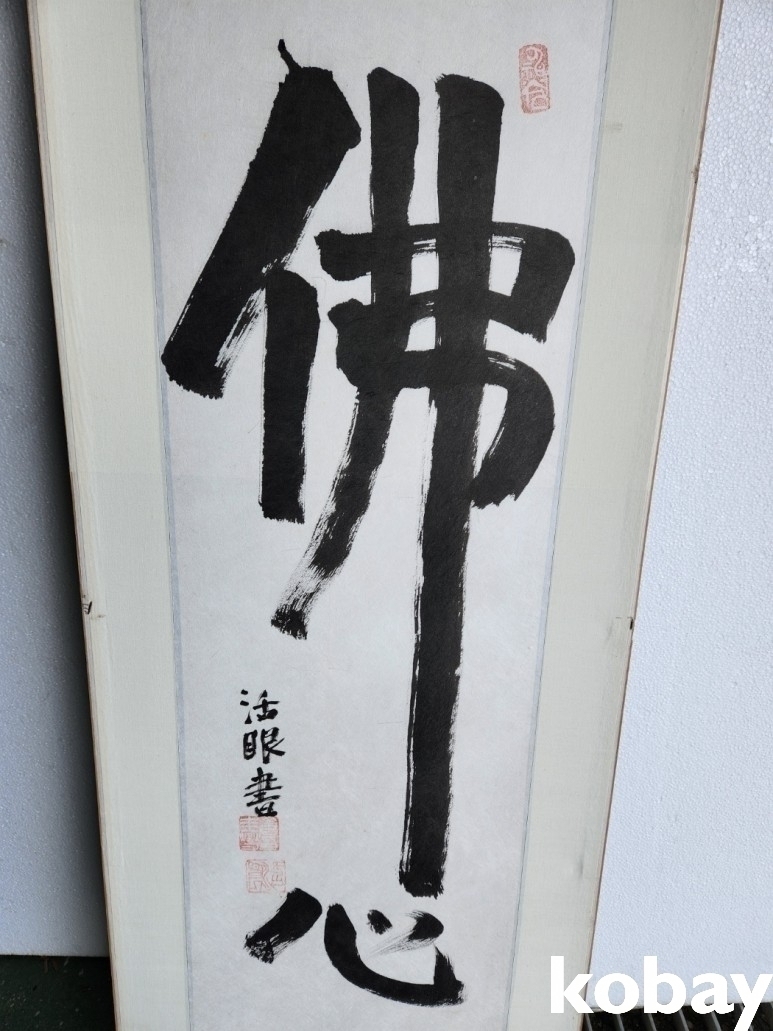 佛心
活眼書
kobay